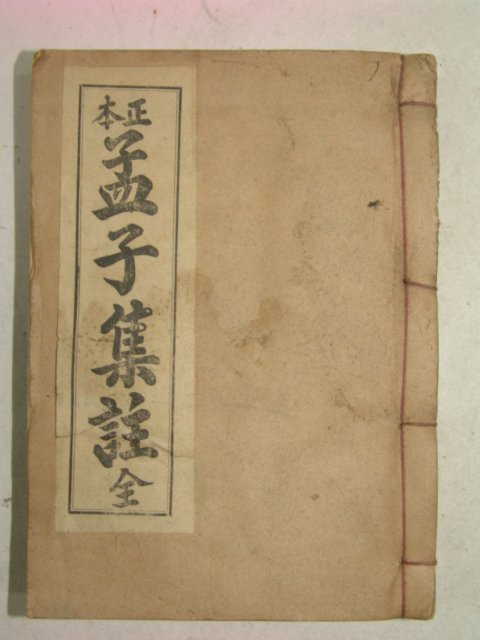 正本
孟子集註
全